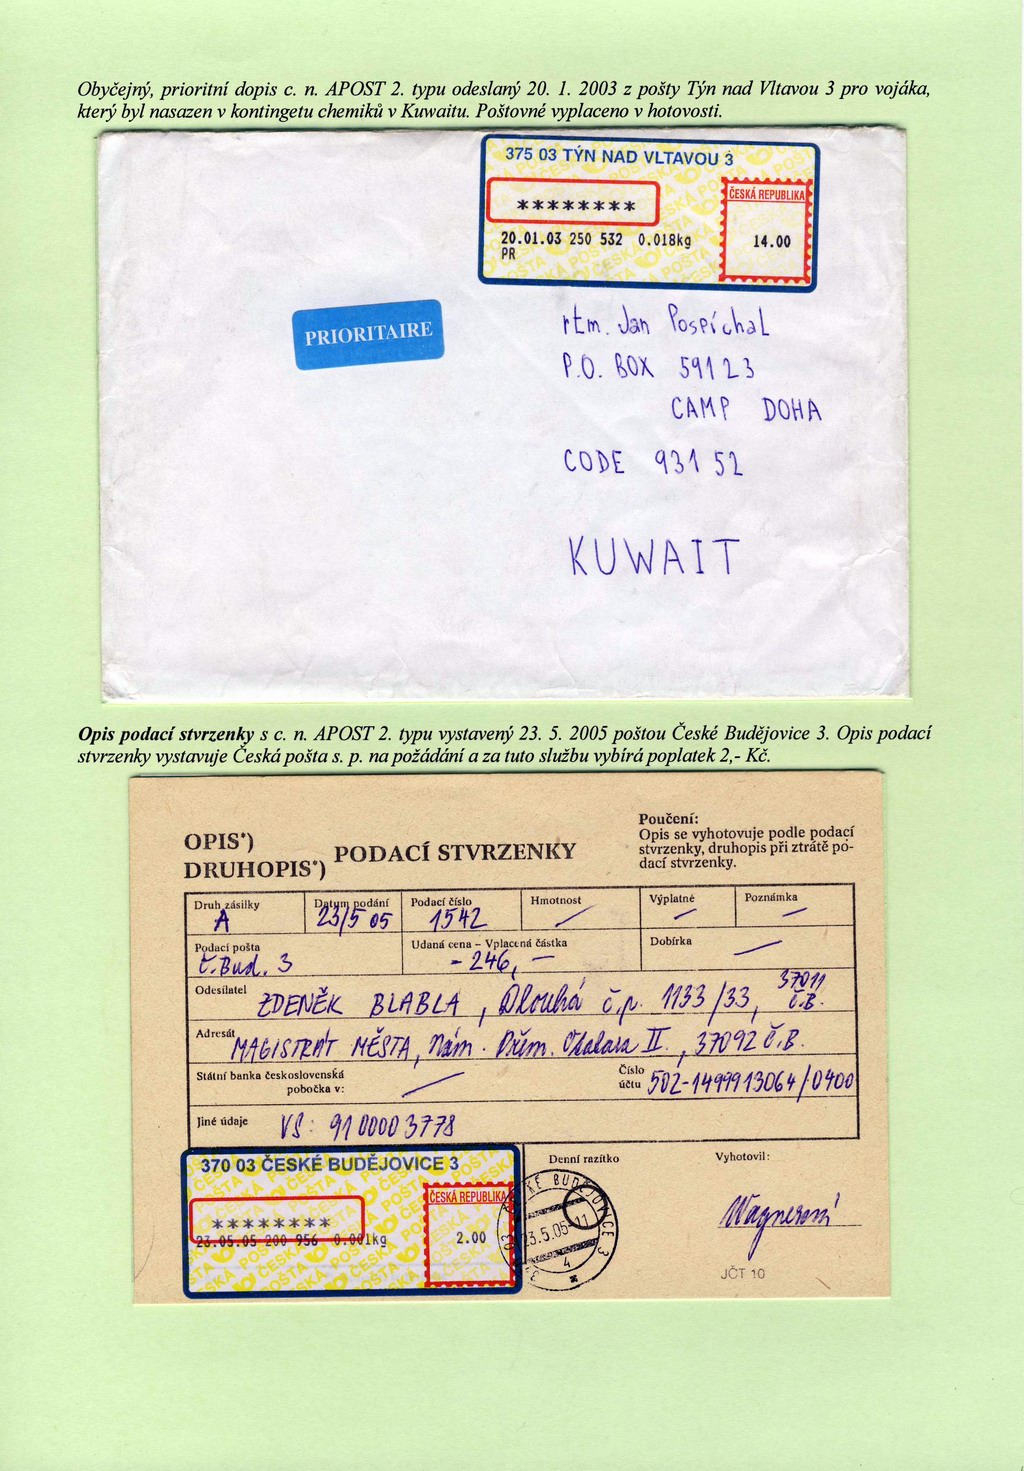 Obyčejný, prioritní dopis c. n. APOST 2. typu odeslaný 20. 1. 2003 z pošty Týn nad Vltavou 3 pro vojáka,
který byl nasazen v kontingetu chemiků v Kuwaitu. Poštovné vyplaceno v hotovosti.
375 03 TÝN NAD VLTAVOU 3
ČESKÁ REPUBLIKA
********
20.01.03 250 532 0.018kg
14.00
PR
PRIORITAIRE
rtm. Jan Pospíchal
P.O. BOX 59123
CAMP DOHA
CODE 931 52
KUWAIT
Opis podací stvrzenky s c. n. APOST 2. typu vystavený 23. 5. 2005 poštou České Budějovice 3. Opis podací
stvrzenky vystavuje Česká pošta s. p. na požádání a za tuto službu vybírá poplatek 2,- Kč.
OPIS*)
DRUHOPIS*)
PODACÍ STVRZENKY
Poučení:
Opis se vyhotovuje podle podací
stvrzenky, druhopis při ztrátě po-
dací stvrzenky.
Druh zásilky
A
Datum podání
23/5 05
Podací číslo
1542
Hmotnost
Výplatné
Poznámka
Podací pošta
Č. Bud. 3
Udaná cena – Vplacená částka
- 246, -
Dobírka
Odesílatel
ZDENĚK BLABLA, Dlouhá č.p. 1133/33, 37011 Č.B.
Adresát
MAGISTRÁT MĚSTA, Nám. Přem. Otakara II., 37092 Č.B.
Státní banka československá
pobočka v:
Číslo
účtu
502-1499913064/0400
Jiné údaje
VS: 9100003778
370 03 ČESKÉ BUDĚJOVICE 3
ČESKÁ REPUBLIKA
********
23.05.05 200 956 0.001kg
2.00
Denní razítko
23.5.05-11
4
Vyhotovil:
Wagnerová
JČT 10